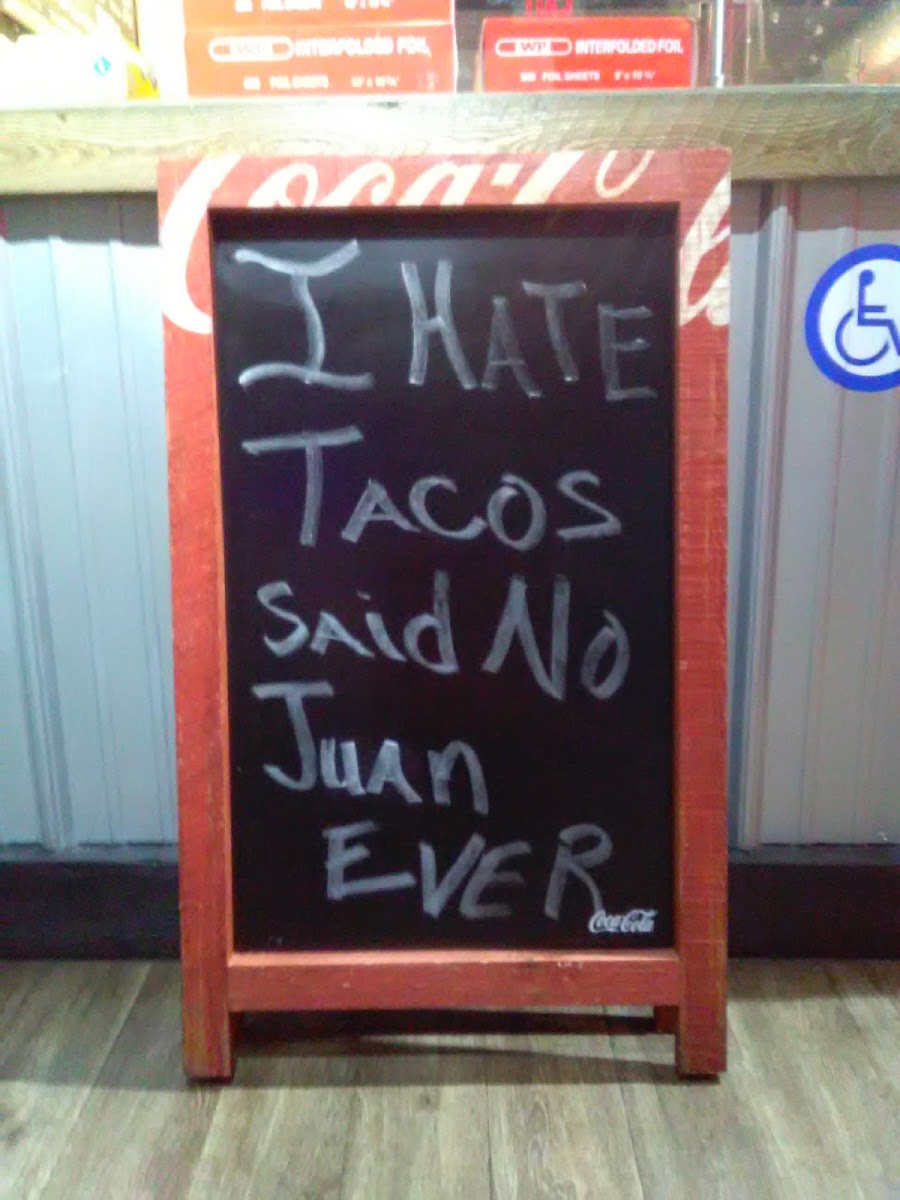 WP INTERFOLDED FOIL
FOIL SHEETS
WP INTERFOLDED FOIL
FOIL SHEETS
Coca-Co
I HATE
TACOS
SAid NO
JuAn
EVER
Coca-Cola